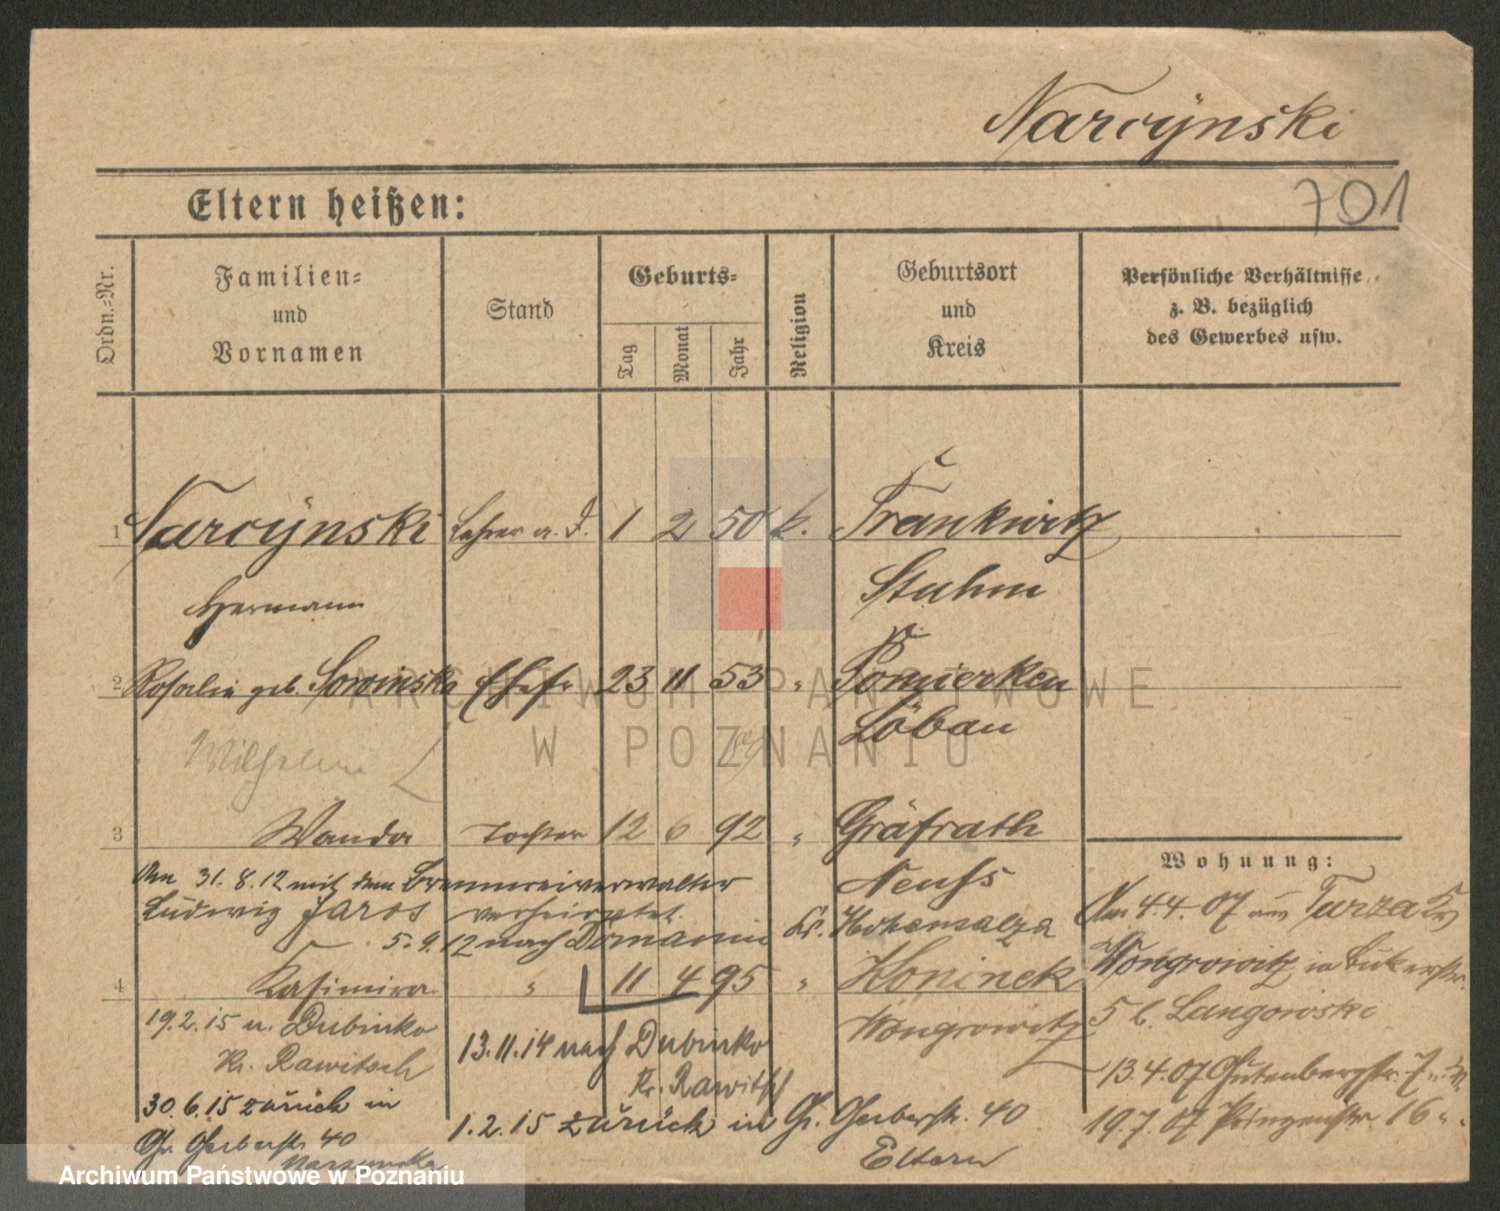 Narcÿnski
701
Eltern heißen:
Ordn.-Nr.
Familien-
und
Vornamen
Stand
Geburts-
Tag
Monat
Jahr
Religion
Geburtsort
und
Kreis
Persönliche Verhältnisse
z. B. bezüglich
des Gewerbes usw.
1 Narcÿnski Lehrer a. D. 1 2 50 k. Trankwitz
Hermann Stuhm
2 Rosalie geb. Sowinska Ehefr. 23 11 53 " Pomierken
Löbau
Wilhelm
3 Wanda Tochter 12 6 92 " Gräfrath
Neuss
Am 31. 8. 12 mit dem Brennereiverwalter
Ludwig Jaros verheiratet.
5. 9. 12 nach Domanin Kr. Hohensalza
4 Kasimira " 11 4 95 " Koninek
Wongrowitz
19.2.15 n. Dubinko
Kr. Rawitsch
13.11.14 nach Dubinko
Kr. Rawitsch
30.6.15 zurück in
Gr. Gerberstr. 40
1.2.15 zurück in Gr. Gerberstr. 40
Eltern
Wohnung:
Am 4.4.07 aus Turza Kr.
Wongrowitz in Bukerstr.
5 b. Langowski
13.4.07 Gutenbergstr. 7
19.7.07 Prinzenstr. 16
ARCHIWUM PAŃSTWOWE
W POZNANIU
Archiwum Państwowe w Poznaniu